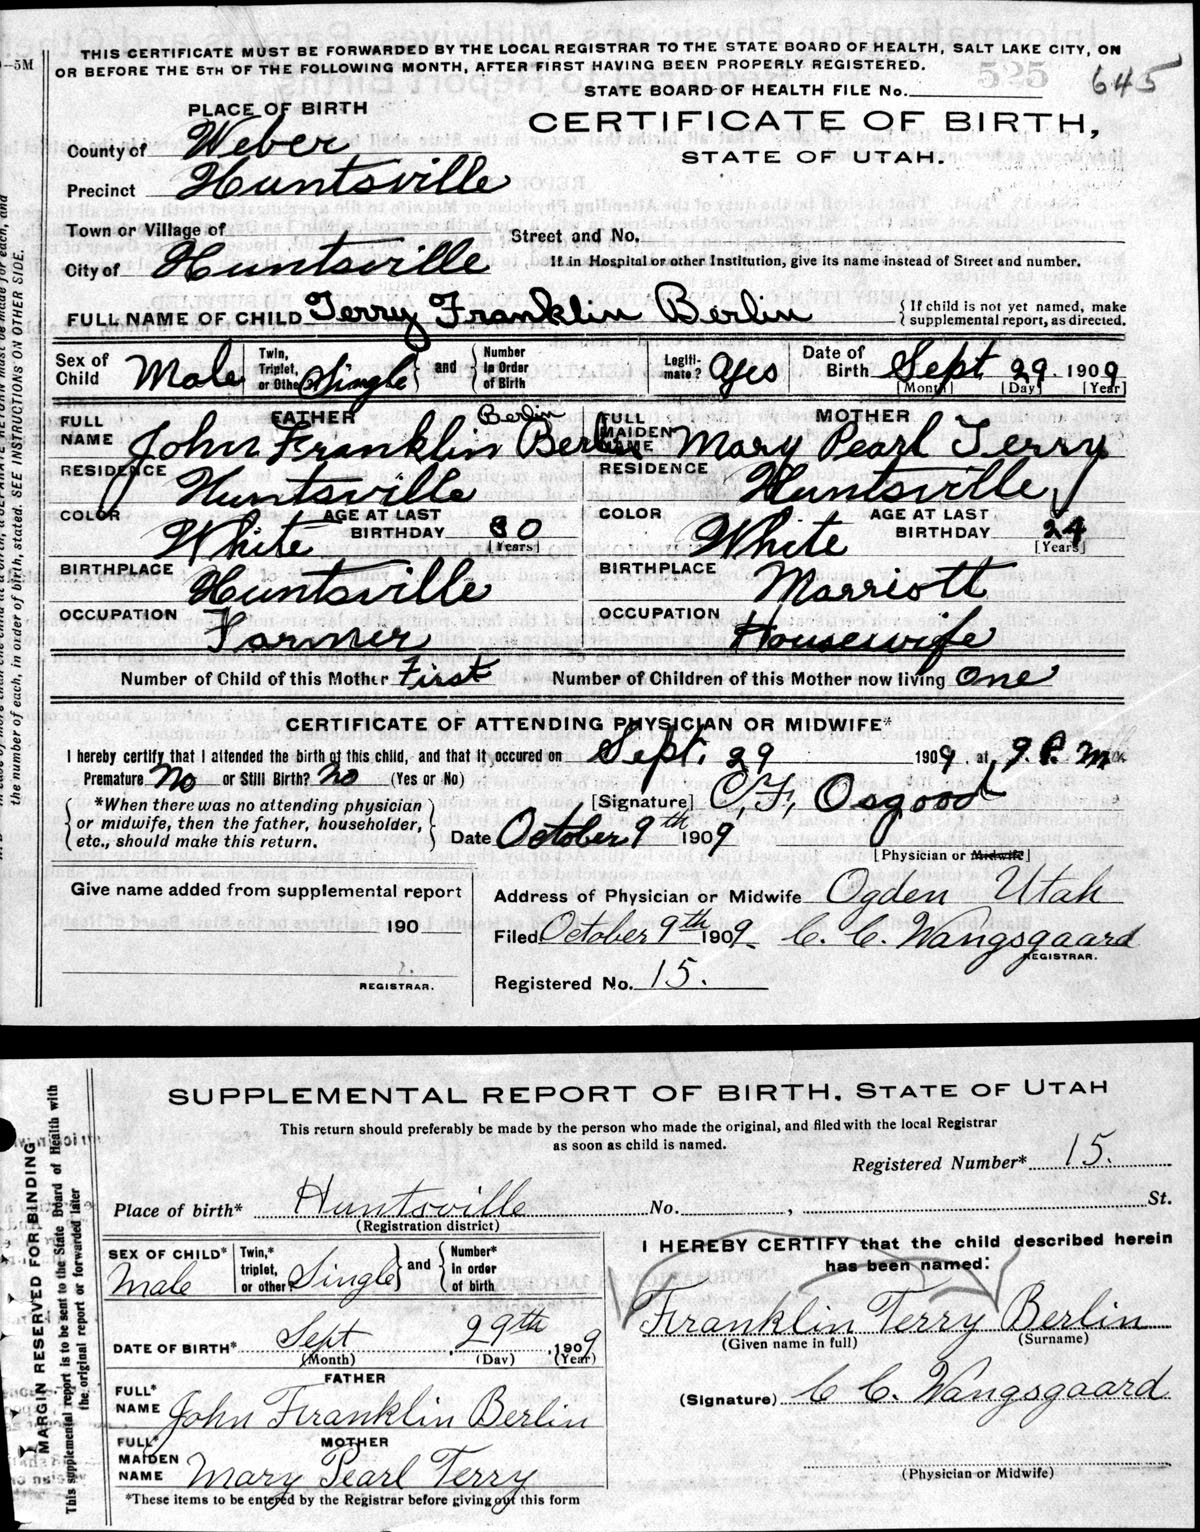 THIS CERTIFICATE MUST BE FORWARDED BY THE LOCAL REGISTRAR TO THE STATE BOARD OF HEALTH, SALT LAKE CITY, ON
OR BEFORE THE 5TH OF THE FOLLOWING MONTH, AFTER FIRST HAVING BEEN PROPERLY REGISTERED.
—5M
525
645
STATE BOARD OF HEALTH FILE No.
PLACE OF BIRTH
CERTIFICATE OF BIRTH,
STATE OF UTAH.
County of Weber
Precinct Huntsville
Town or Village of
Street and No.
City of Huntsville
If in Hospital or other Institution, give its name instead of Street and number.
FULL NAME OF CHILD Terry Franklin Berlin { If child is not yet named, make supplemental report, as directed.
Sex of Child Male Twin, Triplet, or Other Single } and { Number in Order of Birth
Legitimate? Yes Date of Birth Sept 29. 1909
[Month] [Day] [Year]
FATHER
MOTHER
Berlin
FULL NAME John Franklin Berlin
FULL MAIDEN NAME Mary Pearl Terry
RESIDENCE Huntsville
RESIDENCE Huntsville
COLOR White AGE AT LAST BIRTHDAY 30 [Years]
COLOR White AGE AT LAST BIRTHDAY 24 [Years]
BIRTHPLACE Huntsville
BIRTHPLACE Marriott
OCCUPATION Farmer
OCCUPATION Housewife
Number of Child of this Mother First Number of Children of this Mother now living One
CERTIFICATE OF ATTENDING PHYSICIAN OR MIDWIFE*
I hereby certify that I attended the birth of this child, and that it occured on Sept. 29 1909. at 9. P. M
Premature No or Still Birth? No (Yes or No)
[Signature] C. F. Osgood
{ *When there was no attending physician or midwife, then the father, householder, etc., should make this return. }
Date October 9th 1909
[Physician or Midwife]
Give name added from supplemental report
190
REGISTRAR.
Address of Physician or Midwife Ogden Utah
Filed October 9th 1909. C. C. Wangsgaard
REGISTRAR.
Registered No. 15.
the number of each, in order of birth, stated. SEE INSTRUCTIONS ON OTHER SIDE.
SUPPLEMENTAL REPORT OF BIRTH, STATE OF UTAH
This return should preferably be made by the person who made the original, and filed with the local Registrar
as soon as child is named.
Registered Number* 15.
Place of birth* Huntsville No. , St.
(Registration district)
SEX OF CHILD* Male Twin,* triplet, or other? Single } and { Number* in order of birth
DATE OF BIRTH* Sept 29th, 1909
(Month) (Day) (Year)
FATHER
FULL* NAME John Franklin Berlin
MOTHER
FULL* MAIDEN NAME Mary Pearl Terry
*These items to be entered by the Registrar before giving out this form
I HEREBY CERTIFY that the child described herein
has been named:
Franklin Terry Berlin
(Given name in full) (Surname)
(Signature) C C. Wangsgaard
(Physician or Midwife)
MARGIN RESERVED FOR BINDING
This supplemental report is to be sent to the State Board of Health with
the original report or forwarded later